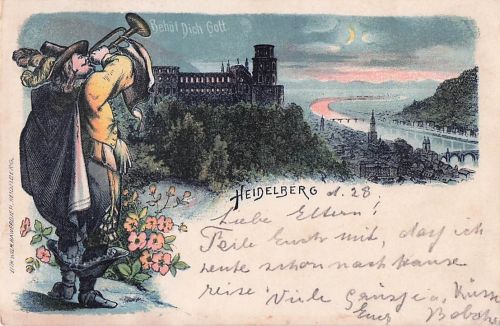 Behüt Dich Gott
HEIDELBERG d. 28
Liebe Eltern!
Teile Euch mit, daß ich
heute schon nach Hause
reise Viele Grüsse u. Küsse
Euer